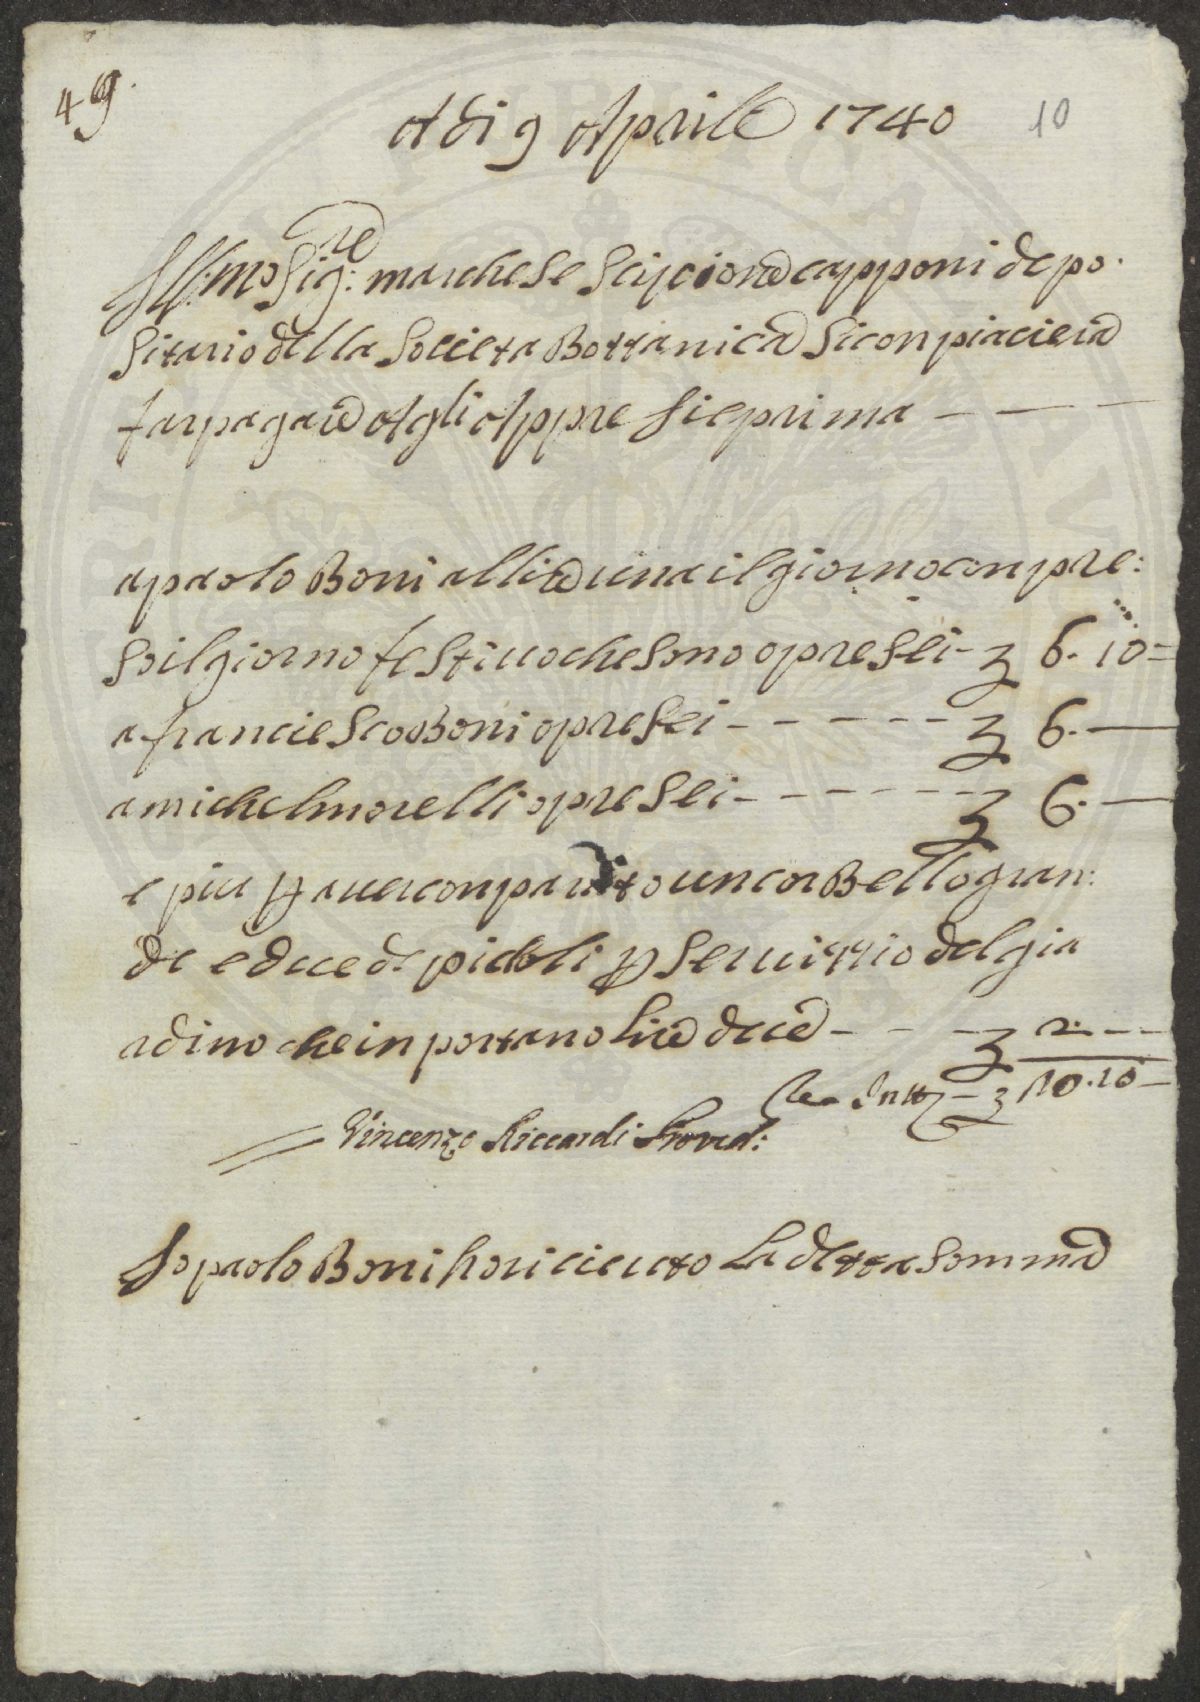 49.
A di 9 Aprile 1740 10
Ill:mo Sig:re marchese Scipione capponi depo.
Sitario della Societa Bottanica Si conpiaciera
far pagare Agli Appre sieprima — — —
a paolo Boni allire una il giorno conpre:
So il giorno festiuo che sono opre Sei - 6. 10 =
a franciesco Boni opre Sei - - - - - - 6. —
a michel morelli opre Sei - - - - - - 6. —
e piu p auer conparato un cor Bello gran:
de e due de picholi p Seruitio del gia
rdino che inportano lire due - - - 2. - -
Vincenzo Riccardi Proved:
Io paolo Boni ho riceuto La detta Somma